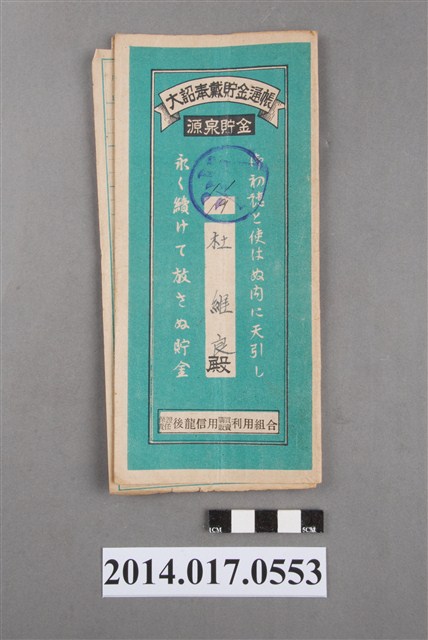 大詔奉戴貯金通帳
源泉貯金
使はぬ内に天引し
永く續けて放さぬ貯金
杜維良殿
後龍信用
利用組合
1CM
5CM
2014.017.0553